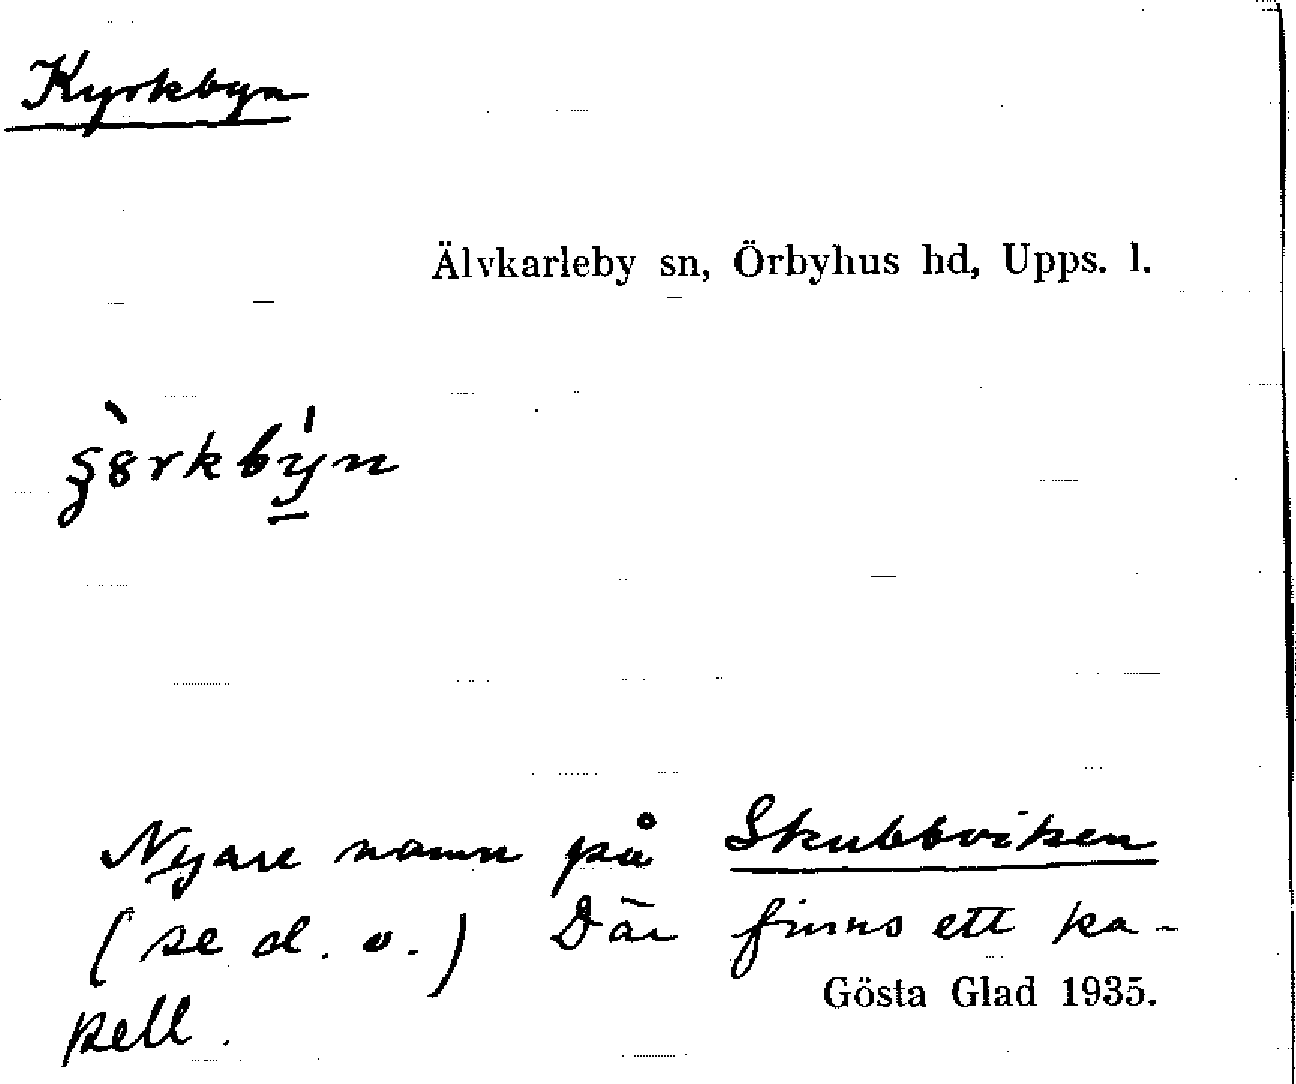 Kyrkbyn
Älvkarleby sn, Örbyhus hd, Upps. l.
Nyare namn på Skubbviken
(se d. o.) Där finns ett ka-
Gösta Glad 1935.
pell.